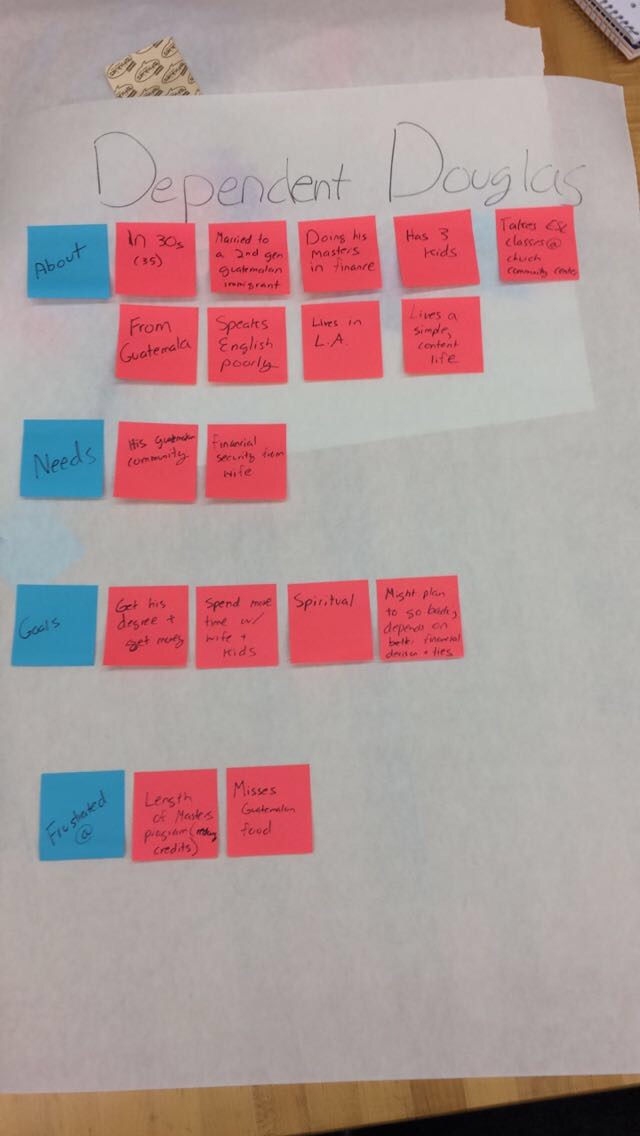 Dependent Douglas
About
In 30s
(35)
Married to
a 2nd gen
guatemalan
immigrant
Doing his
masters
in finance
Has 3
kids
Takes ESL
classes @
church
community center
From
Guatemala
Speaks
English
poorly
Lives in
L.A.
Lives a
simple,
content
life
Needs
His guatemalan
community
Financial
security from
wife
Goals
Get his
degree +
get money
Spend more
time w/
wife +
kids
Spiritual
Might plan
to go back,
depends on
financial
decision + ties
Frustrated
@
Length
of Masters
program (many
credits)
Misses
Guatemalan
food